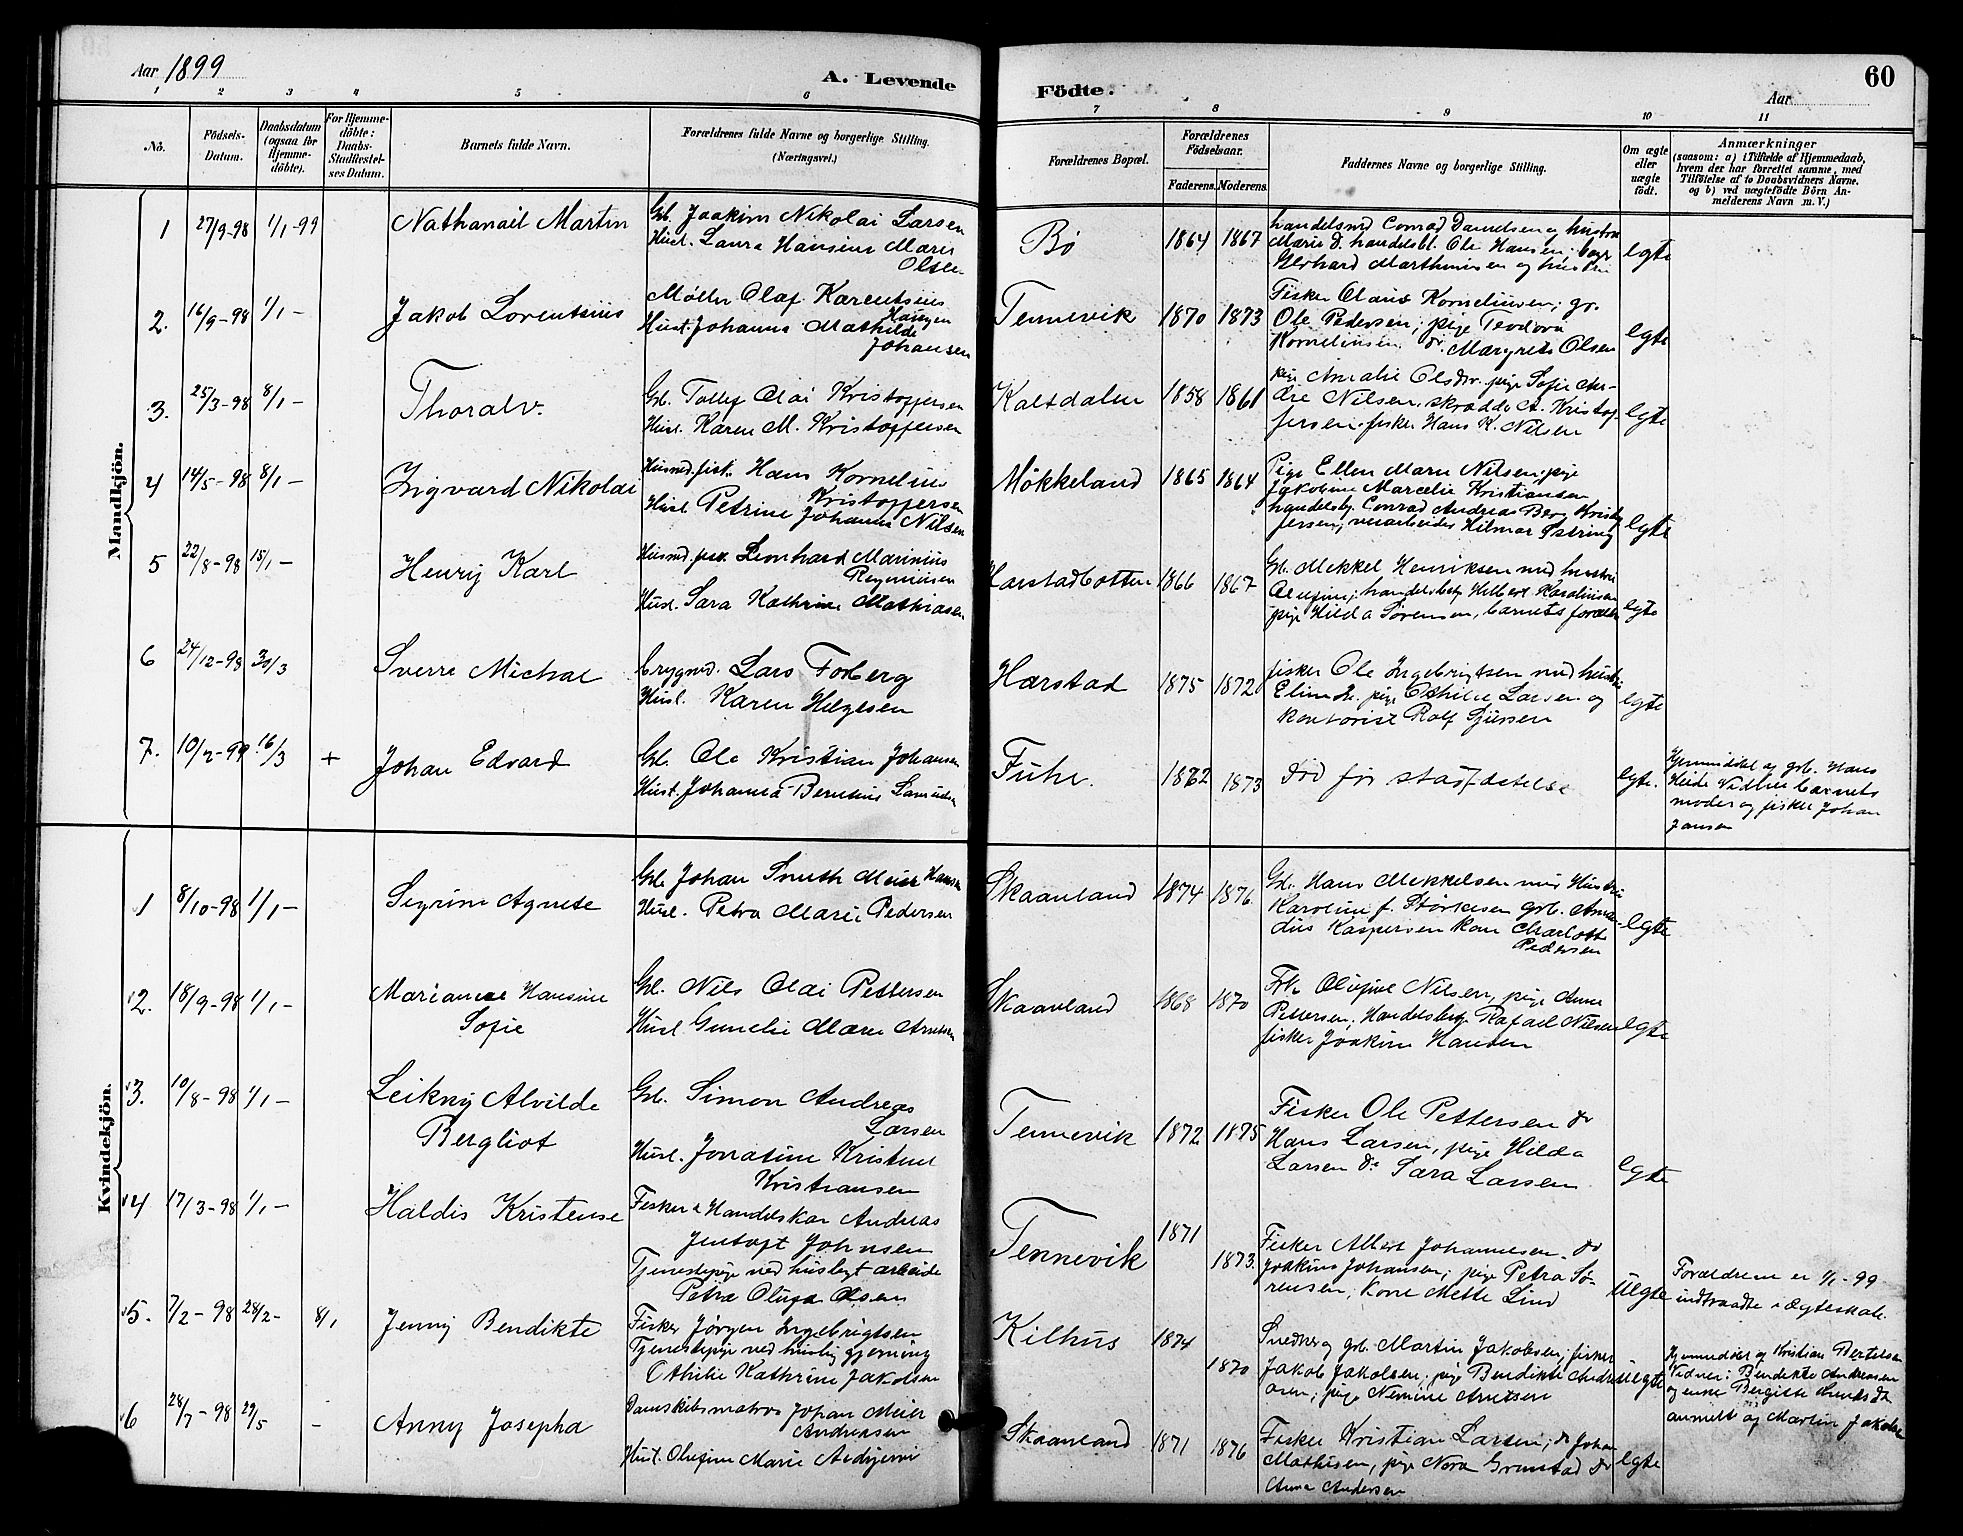 Aar 1899
A. Levende
Födte.
Aar
60
1 2 3 4 5 6 7 8 9 10 11
No.
Födsels-
Datum.
Daabsdatum
(ogsaa for
Hjemme-
döbte).
For Hjemme-
döbte:
Daabs-
Stadfæstel-
ses Datum.
Barnets fulde Navn.
Forældrenes fulde Navne og borgerlige Stilling.
(Næringsvei.)
Forældrenes Bopæl.
Forældrenes
Födselsaar.
Faderens. Moderens.
Faddernes Navne og borgerlige Stilling.
Om ægte
eller
uægte
födt.
Anmærkninger
(saasom: a) i Tilfælde af Hjemmedaab,
hvem der har forrettet samme, med
Tilföielse af to Daabsvidners Navne,
og b) ved uægtefödte Börn An-
melderens Navn m. V.)
Mandkjön.
1 27/9-98 1/1-99 Nathanail Martin
Gb. Joakim Nikolai Larsen
Hust. Laura Hansine Marie
Olsen
Bø 1864 1867
handelsmd Conrad Danielsen og hustru
Marie D. handelsbt. Ole Hansen,
Gerhard Marthinussen og hustru
egte
2. 16/9-98 1/1- Jakob Lorentsius
Møller Olaf Karentsius
Hansen
Hust. Johanna Mathilde
Johansen
Tennevik 1870 1873
Fisker Olaus Korneliusen; gr.
Ole Pedersen; pige Teodora
Korneliusen do Margrete Olsen
egte
3. 25/3-98 8/1- Thoralv.
Gb. Tollef Olai Kristoffersen
Hust. Karen M. Kristoffersen
Kaltdalen 1858 1861
pige Amalie Olsdtr. pige Sofie An-
dre Nilsen, skrædder A. Kristof-
fersen, fisker Hans K. Nilsen
egte
4 14/5-98 8/1- Ingvard Nikolai
Husmd. fisk. Hans Kornelius
Kristoffersen
Hust Petrine Johanna Nilsen
Møkkeland 1865 1864
Pige Ellen Marie Nilsen, pige
Jakobine Marcelie Kristiansen
handelsbg. Conrad Andreas Berg Kristof-
fersen, Hilmar Østring
egte
5 22/8-98 15/1- Henrij Karl
Husmd. fisk. Leonhard Marinius
Hust. Sara Kathrine Mathiasen
Harstadbotten 1866 1867
Gb. Mekkel Henriksen med hustru
Olufine; handelsbetj Hilbert Karoliusen
pige Hilda Sørensen, barnets forældre
egte
6 24/12-98 30/3 Sverre Michal
brygmd. Lars Forberg
Hust. Karen Helgesen
Harstad 1875 1872
fisker Ole Ingebrigtsen med hustru
Othilie Larsen og
kontorist Rolf
egte
7. 10/2-99 16/3 + Johan Edvard
Gb. Ole Kristian Johansen
Hust. Johanna Berntine
Fuhr. 1872 1873 død før stadfæstelse egte.
Hjemmedøbt af gb. Hans
moder og fisker Johan
Jansen
Kvindekjön.
1 8/10-98 1/1- Sigrun Agnete
Gb. Johan Smith Meier Hansen
Hust. Petra Marie Pedersen
Skaanland 1874 1876
Gb. Hans Mekkelsen med Hustru
Karoline f. Størkesen gb. Ama-
dius Kaspersen Charlotte
Pedersen
egte
2. 18/9-98 1/1- Marianne Hansine
Sofie
Gb. Nils Olai Pettersen
Hust Gunelie Marie
Skaanland 1868 1870
Frk. Olufine Nilsen, pige Anna
Pettersen, Handelsbetj Rafael Nilsen
fisker Joakim Hansen
egte
3. 10/8-98 1/1- Leikny Alvilde
Bergliot
Gb. Simon Andreas
Larsen
Hust. Jonasine Kristine
Kristiansen
Tennevik 1872 1875
Fisker Ole Pettersen do
Hans Larsen, pige Hilda
Larsen do Sara Larsen
egte
4 17/3-98 1/1- Haldis Kristense
Fisker & Handelskar Andreas
Jentoft Johnsen
Tjenestepige ved huslegt arbeide
Petra Olufa Olsen
Tennevik 1871 1873.
Fisker Albert Johannesen do
Joakim Johansen; pige Petra Sø-
rensen, Kone Mette Lind
Uegte
Forældrene er 1/1-99
indtraadte i Ægteskab
5. 7/2-98 28/2- 8/1 Jenny Bendikte
Fisker Jørgen Ingebrigtsen
Tjenestepige ved huslig gjerning
Othilie Kathrine Jakobsen
Kilhus 1874 1870
Snedker og gb. Martin Jakobsen, fisker
Jakob Jakobsen; pige Bendikte Andre-
asen; pige Nemine Arntsen
Uegte
Hjemmedøbt af Kristian Bertelsen
Vidner: Bendikte Andreassen
anmelt af Martin Jakobsen
6 28/7-98 29/5 - Anny Josepha
Damskibsmatros Johan Meier
Andreasen
Hust. Olufine Marie
Skaanland 1871 1876
Fisker Kristian Larsen; do Johan
Mathisen, pige Nora Grunstad do
Anna Andersen
egte